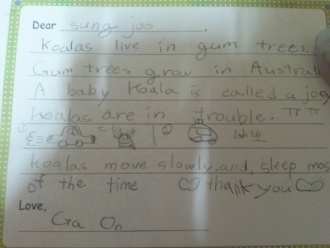 Dear sung joo
Koalas live in gum trees.
Gum trees grow in Australi
A baby Koala is called a joe
Koalas are in trouble. ㅠㅠ
Koalas move slowly, and sleep mos
of the time ♡ thank you ♡
Love,
Ga On